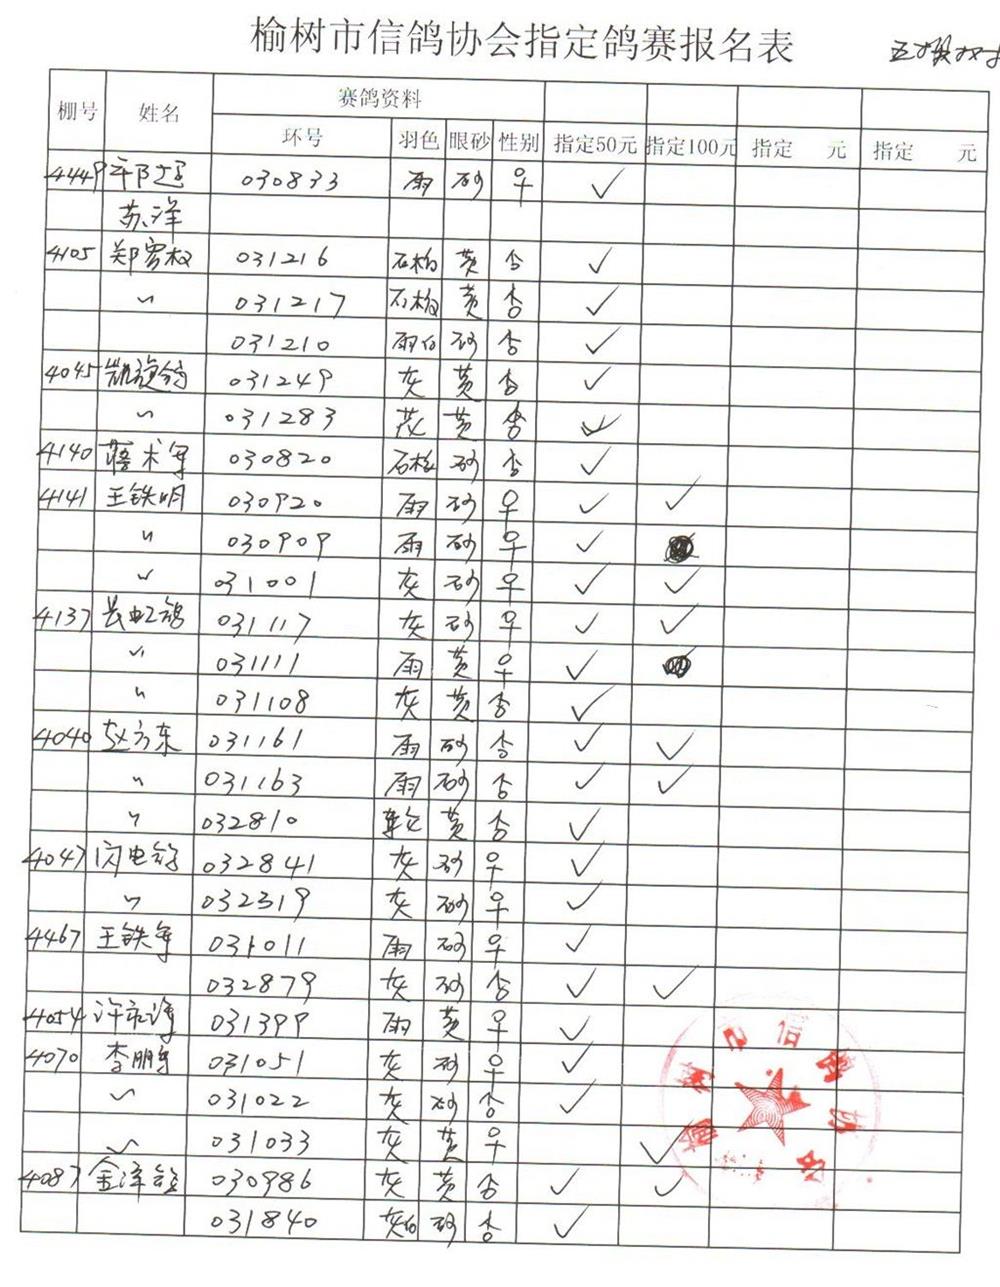 榆树市信鸽协会指定鸽赛报名表
棚号 姓名 赛鸽资料
环号 羽色 眼砂 性别 指定50元 指定100元 指定 元 指定 元
4449 030833 雨 砂 ♀ ✓
苏洋
4105 郑 权 031216 石 黄 ✓
〃 031217 石 黄 ✓
031210 雨白 砂 ✓
4045 凯旋鸽 031249 灰 黄 ✓
〃 031283 黄 ✓
4140 术军 030820 石 砂 ✓
4141 王铁明 030920 雨 砂 ♀ ✓ ✓
〃 030909 雨 砂 ♀ ✓
〃 031001 灰 砂 ♀ ✓ ✓
4137 长虹鸽 031117 灰 砂 ♀ ✓ ✓
〃 031111 雨 黄 ♀ ✓
〃 031108 灰 黄 ✓
4040 赵方东 031161 雨 砂 ✓ ✓
〃 031163 雨 砂 ✓ ✓
〃 032810 黄 ✓
4047 闪电鸽 032841 灰 砂 ♀ ✓
〃 032319 灰 砂 ♀ ✓
4467 王铁军 031011 雨 砂 ♀ ✓
032879 灰 砂 ✓ ✓
4054 许 031399 雨 黄 ♀ ✓
4070 李鹏 031051 灰 砂 ♀ ✓
〃 031022 灰 砂 ✓
〃 031033 灰 黄 ♀ ✓
4087 金泽鸽 030986 灰 黄 ✓ ✓
031840 灰白 砂 ✓
榆树市信鸽协会